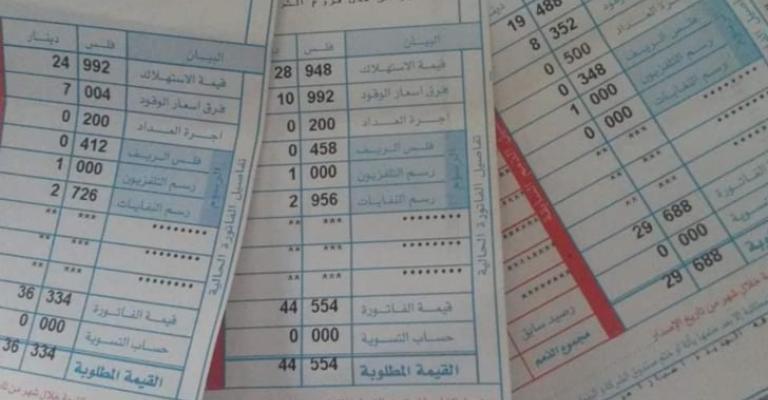 دينار فلس البيان
24 992 قيمة الاستهلاك
7 004 فرق اسعار الوقود
0 200 اجرة العداد
0 412 فلس الريف
1 000 رسم التلفزيون
2 726 رسم النفايات
** *** ********
** *** ********
** *** ********
36 334 قيمة الفاتورة
0 000 حساب التسوية
36 334 القيمة المطلوبة
الرسوم
تفاصيل الفاتورة الحالية
فلس البيان
28 948 قيمة الاستهلاك
10 992 فرق اسعار الوقود
0 200 اجرة العداد
0 458 فلس الريف
1 000 رسم التلفزيون
2 956 رسم النفايات
** *** ********
** *** ********
** *** ********
44 554 قيمة الفاتورة
0 000 حساب التسوية
44 554 القيمة المطلوبة
الرسوم
تفاصيل الفاتورة الحالية
19 488
8 352
0 500
0 348 فلس الريف
1 000 رسم التلفزيون
0 000 رسم النفايات
** *** ********
** *** ********
29 688 الفاتورة
0 000
29 688
رصيد سابق
مجموع الذمم
خلال شهر من تاريخ الإصدار